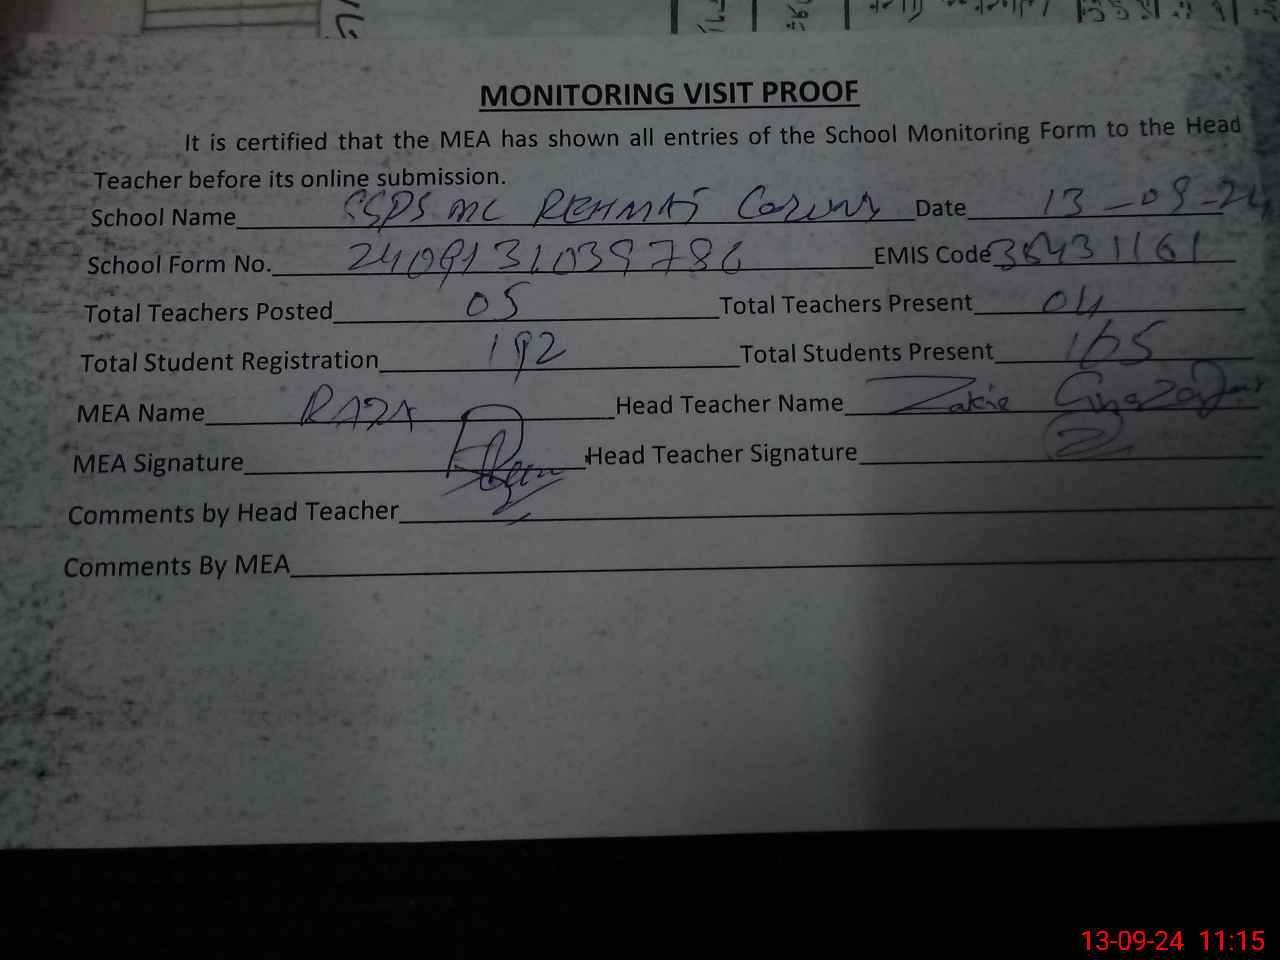 MONITORING VISIT PROOF
It is certified that the MEA has shown all entries of the School Monitoring Form to the Head
Teacher before its online submission.
School Name GSPS MC REHMAT Date 13-09-24
School Form No. 2409131039786 EMIS Code
Total Teachers Posted 05 Total Teachers Present 04
Total Student Registration 192 Total Students Present 165
MEA Name RAZA Head Teacher Name Zakia
MEA Signature Head Teacher Signature
Comments by Head Teacher
Comments By MEA
13-09-24 11:15